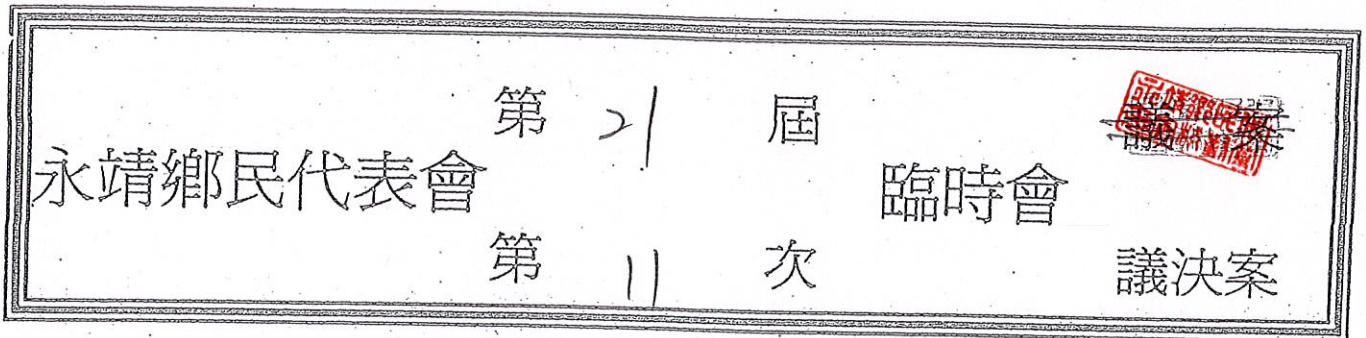 永靖鄉民代表會
第 21 屆
第 11 次
臨時會
議案
議決案